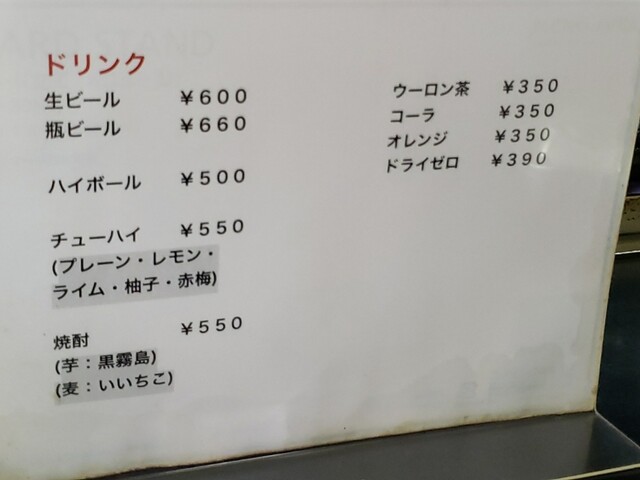 ドリンク
生ビール ￥６００
瓶ビール ￥６６０
ハイボール ￥５００
チューハイ ￥５５０
(プレーン・レモン・
ライム・柚子・赤梅)
焼酎 ￥５５０
(芋：黒霧島)
(麦：いいちこ)
ウーロン茶 ￥３５０
コーラ ￥３５０
オレンジ ￥３５０
ドライゼロ ￥３９０